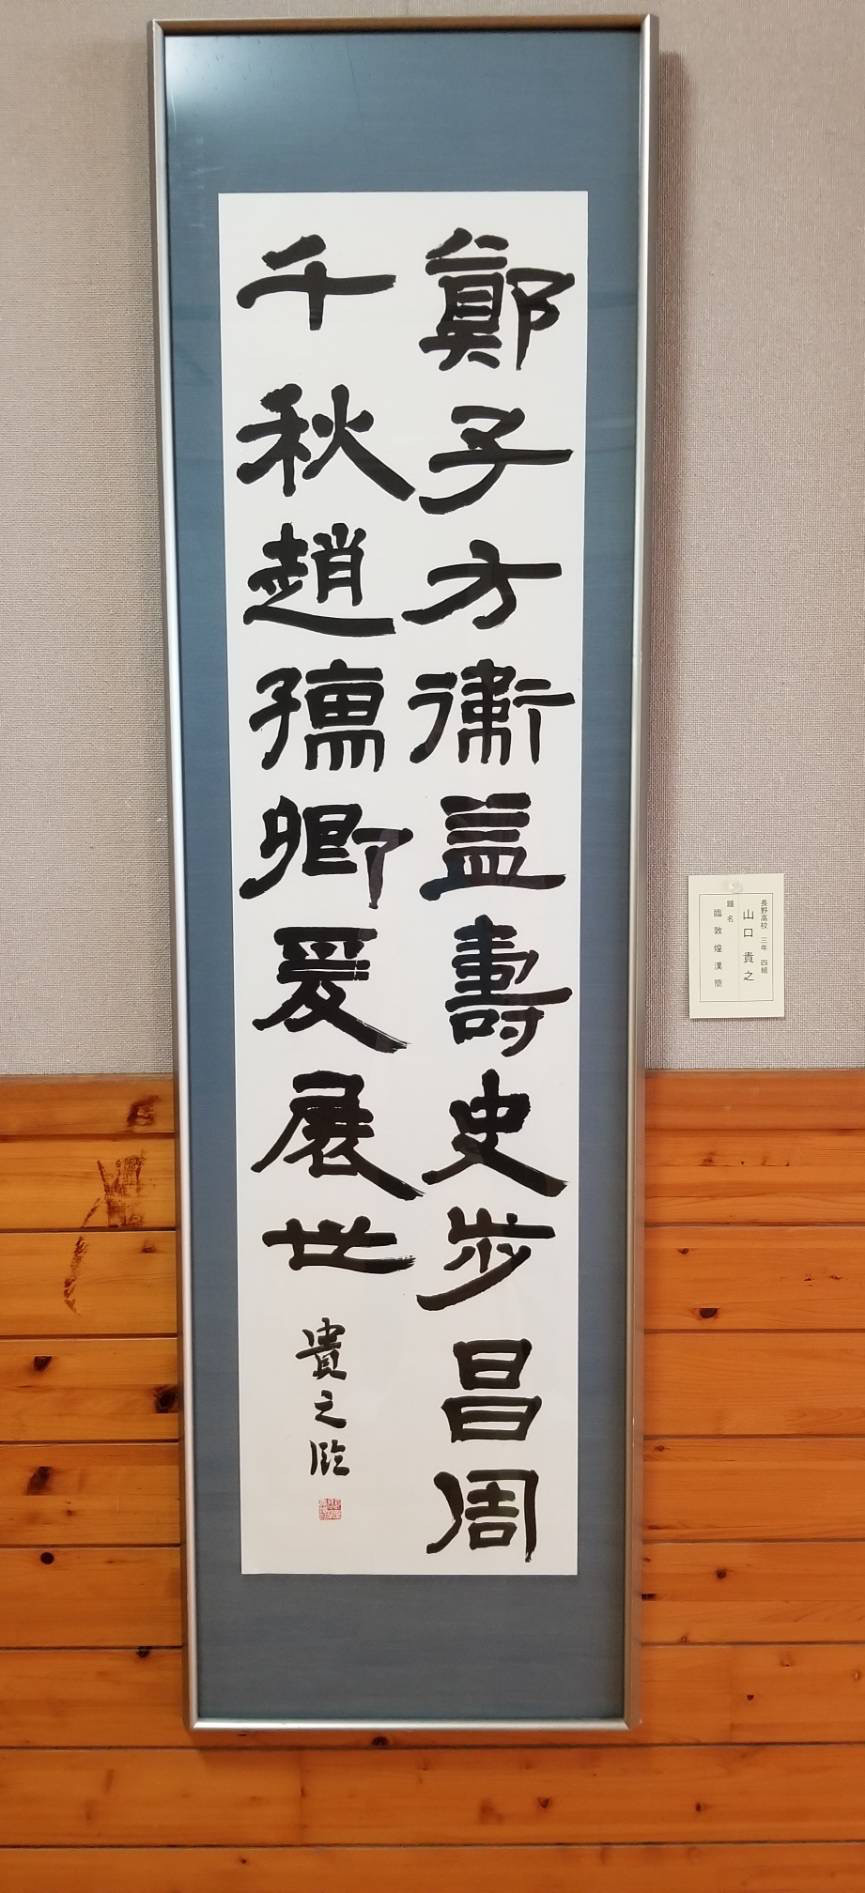 鄭子方衛益壽史步昌周
千秋趙孺卿爰展世
貴之臨
長野高校 三年 四組
山口 貴之
題名
臨敦煌漢簡